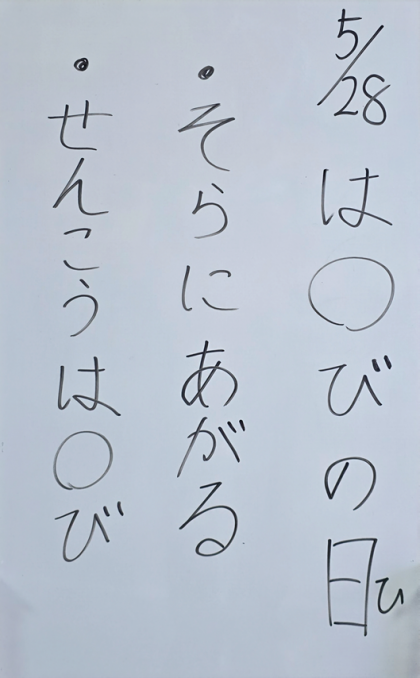 5/28は○びの日ひ
・そらにあがる
・せんこうは○び